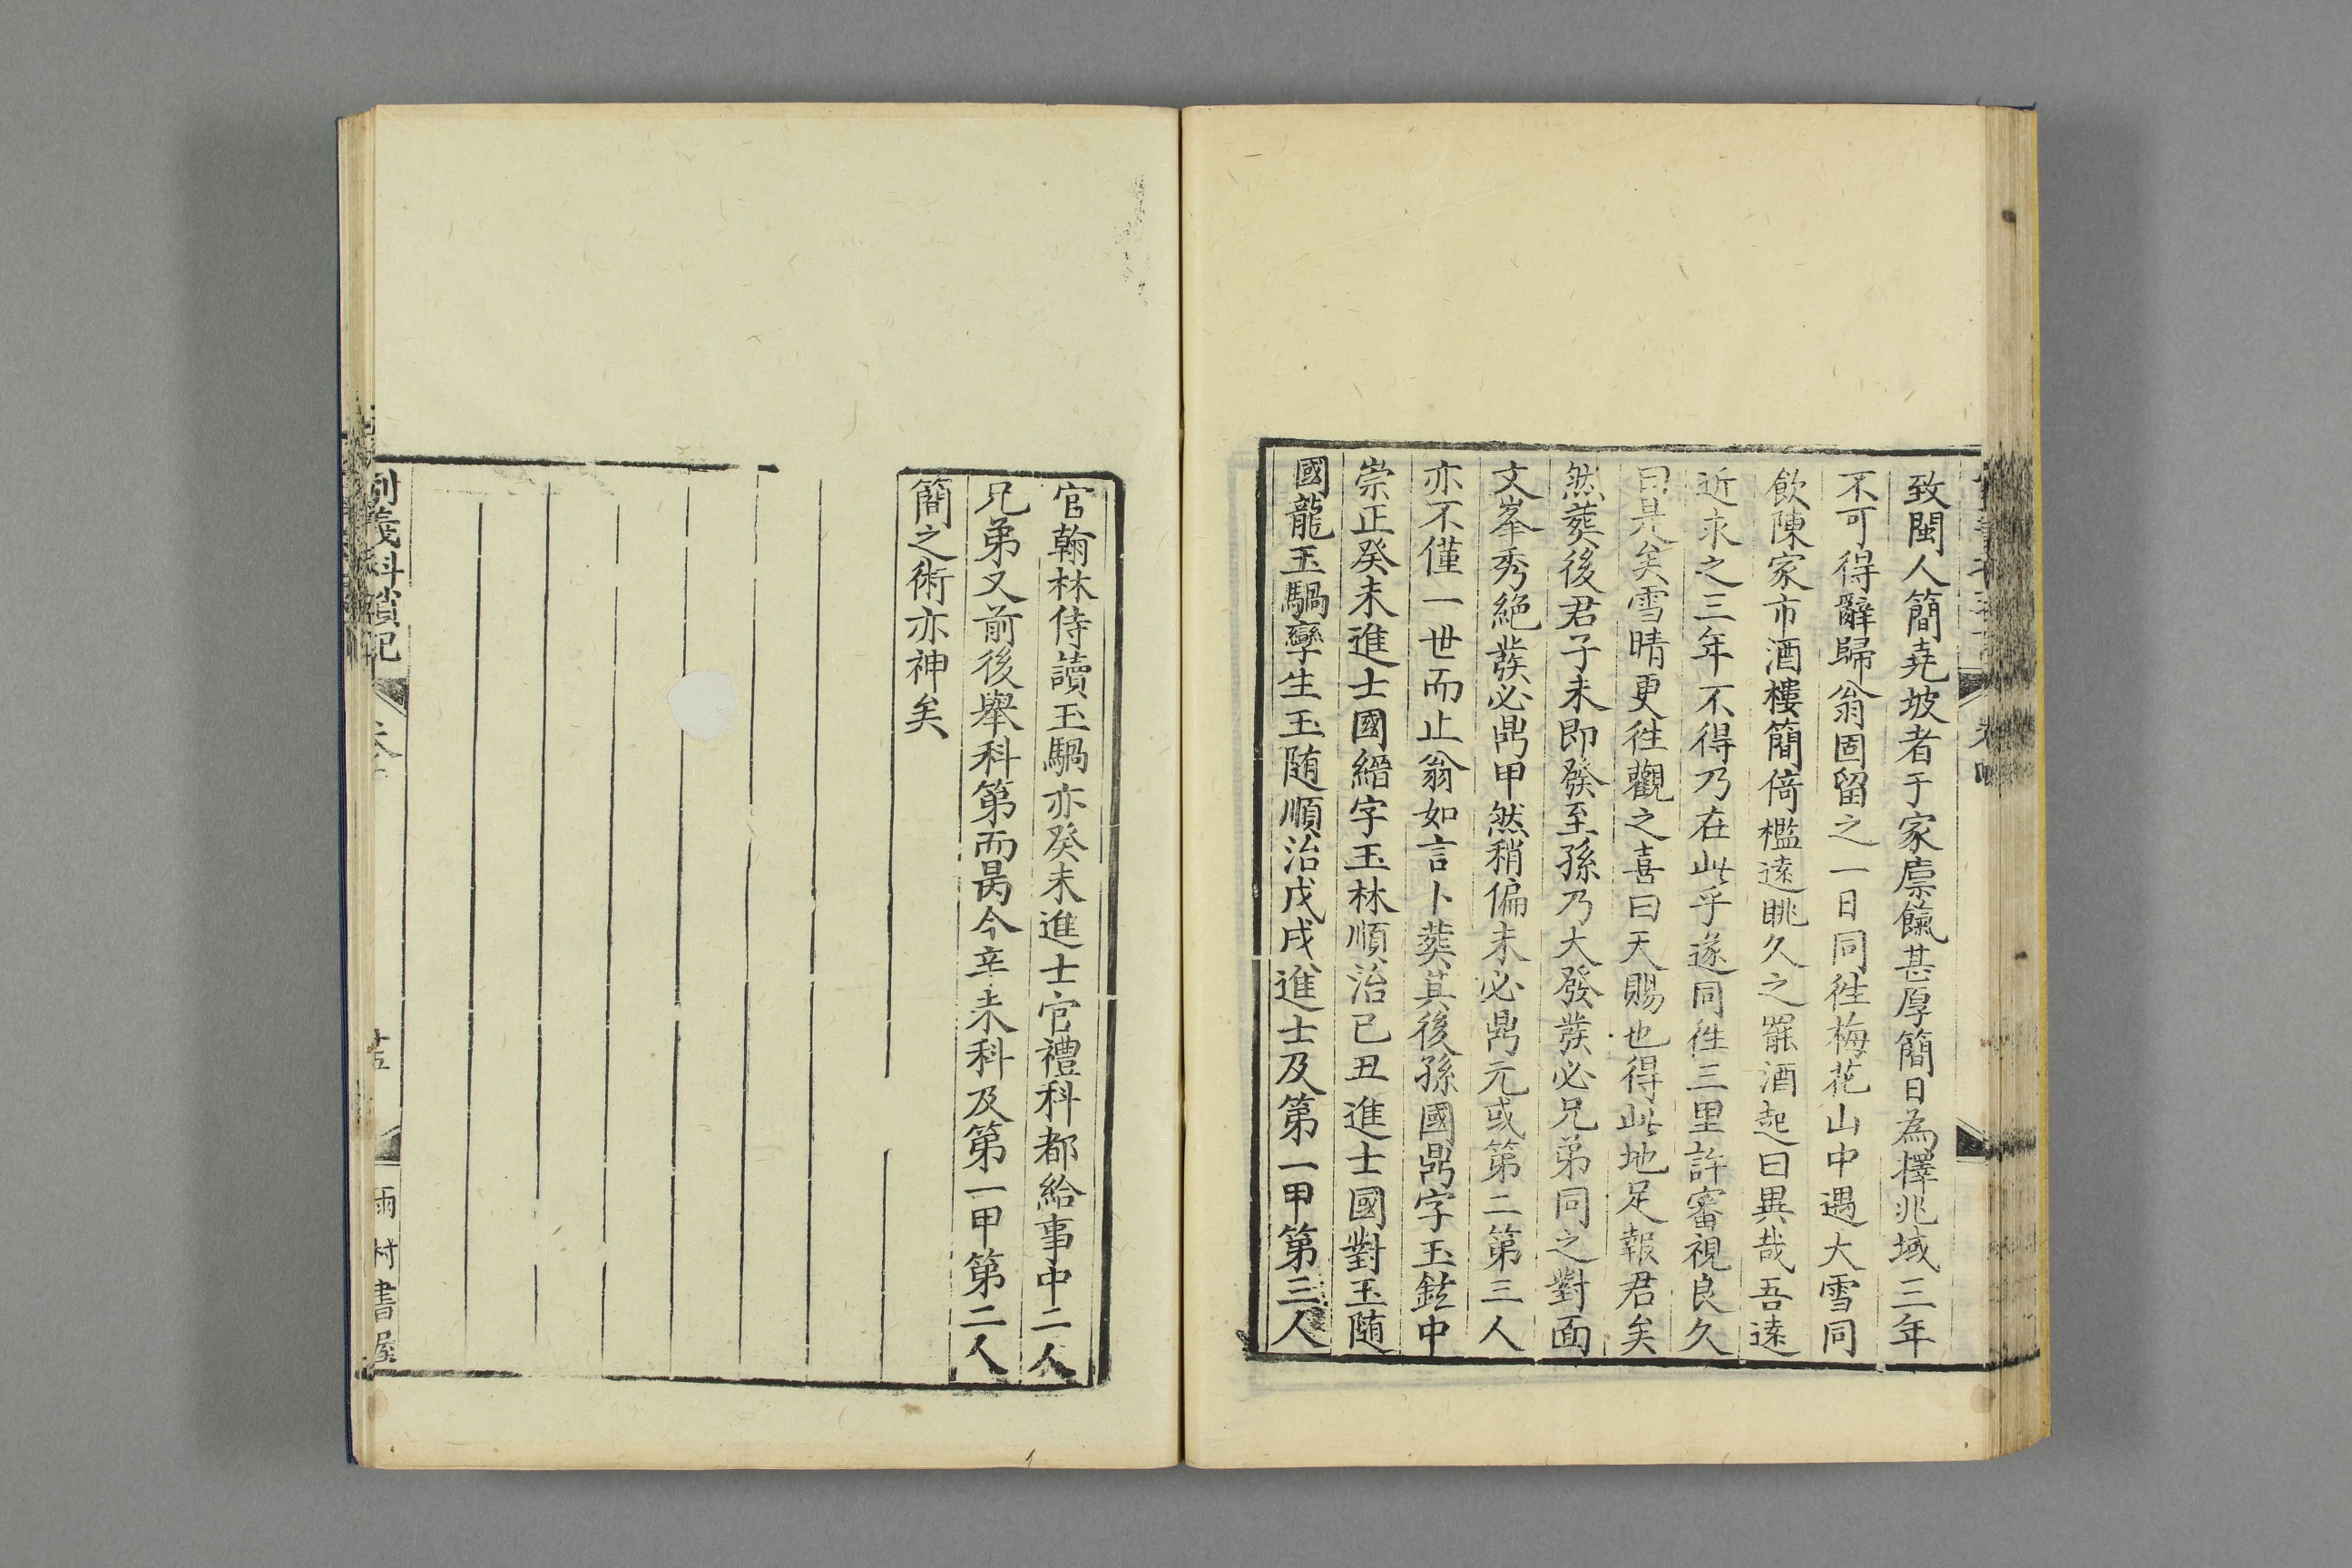 致閩人簡堯坡者于家廪餼甚厚簡日為擇兆域三年
不可得辭歸翁固留之一日同徃梅花山中遇大雪同
飲陳家市酒樓簡倚檻遠眺久之罷酒起曰異哉吾遠
近求之三年不得乃在此乎遂同徃三里許審視良久
曰是矣雪晴更徃觀之喜曰天賜也得此地足報君矣
然葬後君子未即發至孫乃大發發必兄弟同之對面
文峯秀絶發必鼎甲然稍偏未必鼎元或第二第三人
亦不僅一世而止翁如言卜葬其後孫國鼎字玉鉉中
崇正癸未進士國縉字玉林順治已丑進士國對玉随
國龍玉騧孿生玉随順治戊戌進士及第一甲第三人
官翰林侍讀玉騧亦癸未進士官禮科都給事中二人
兄弟又前後舉科第而昺今辛未科及第一甲第二人
簡之術亦神矣
制義科瑣記
雨村書屋